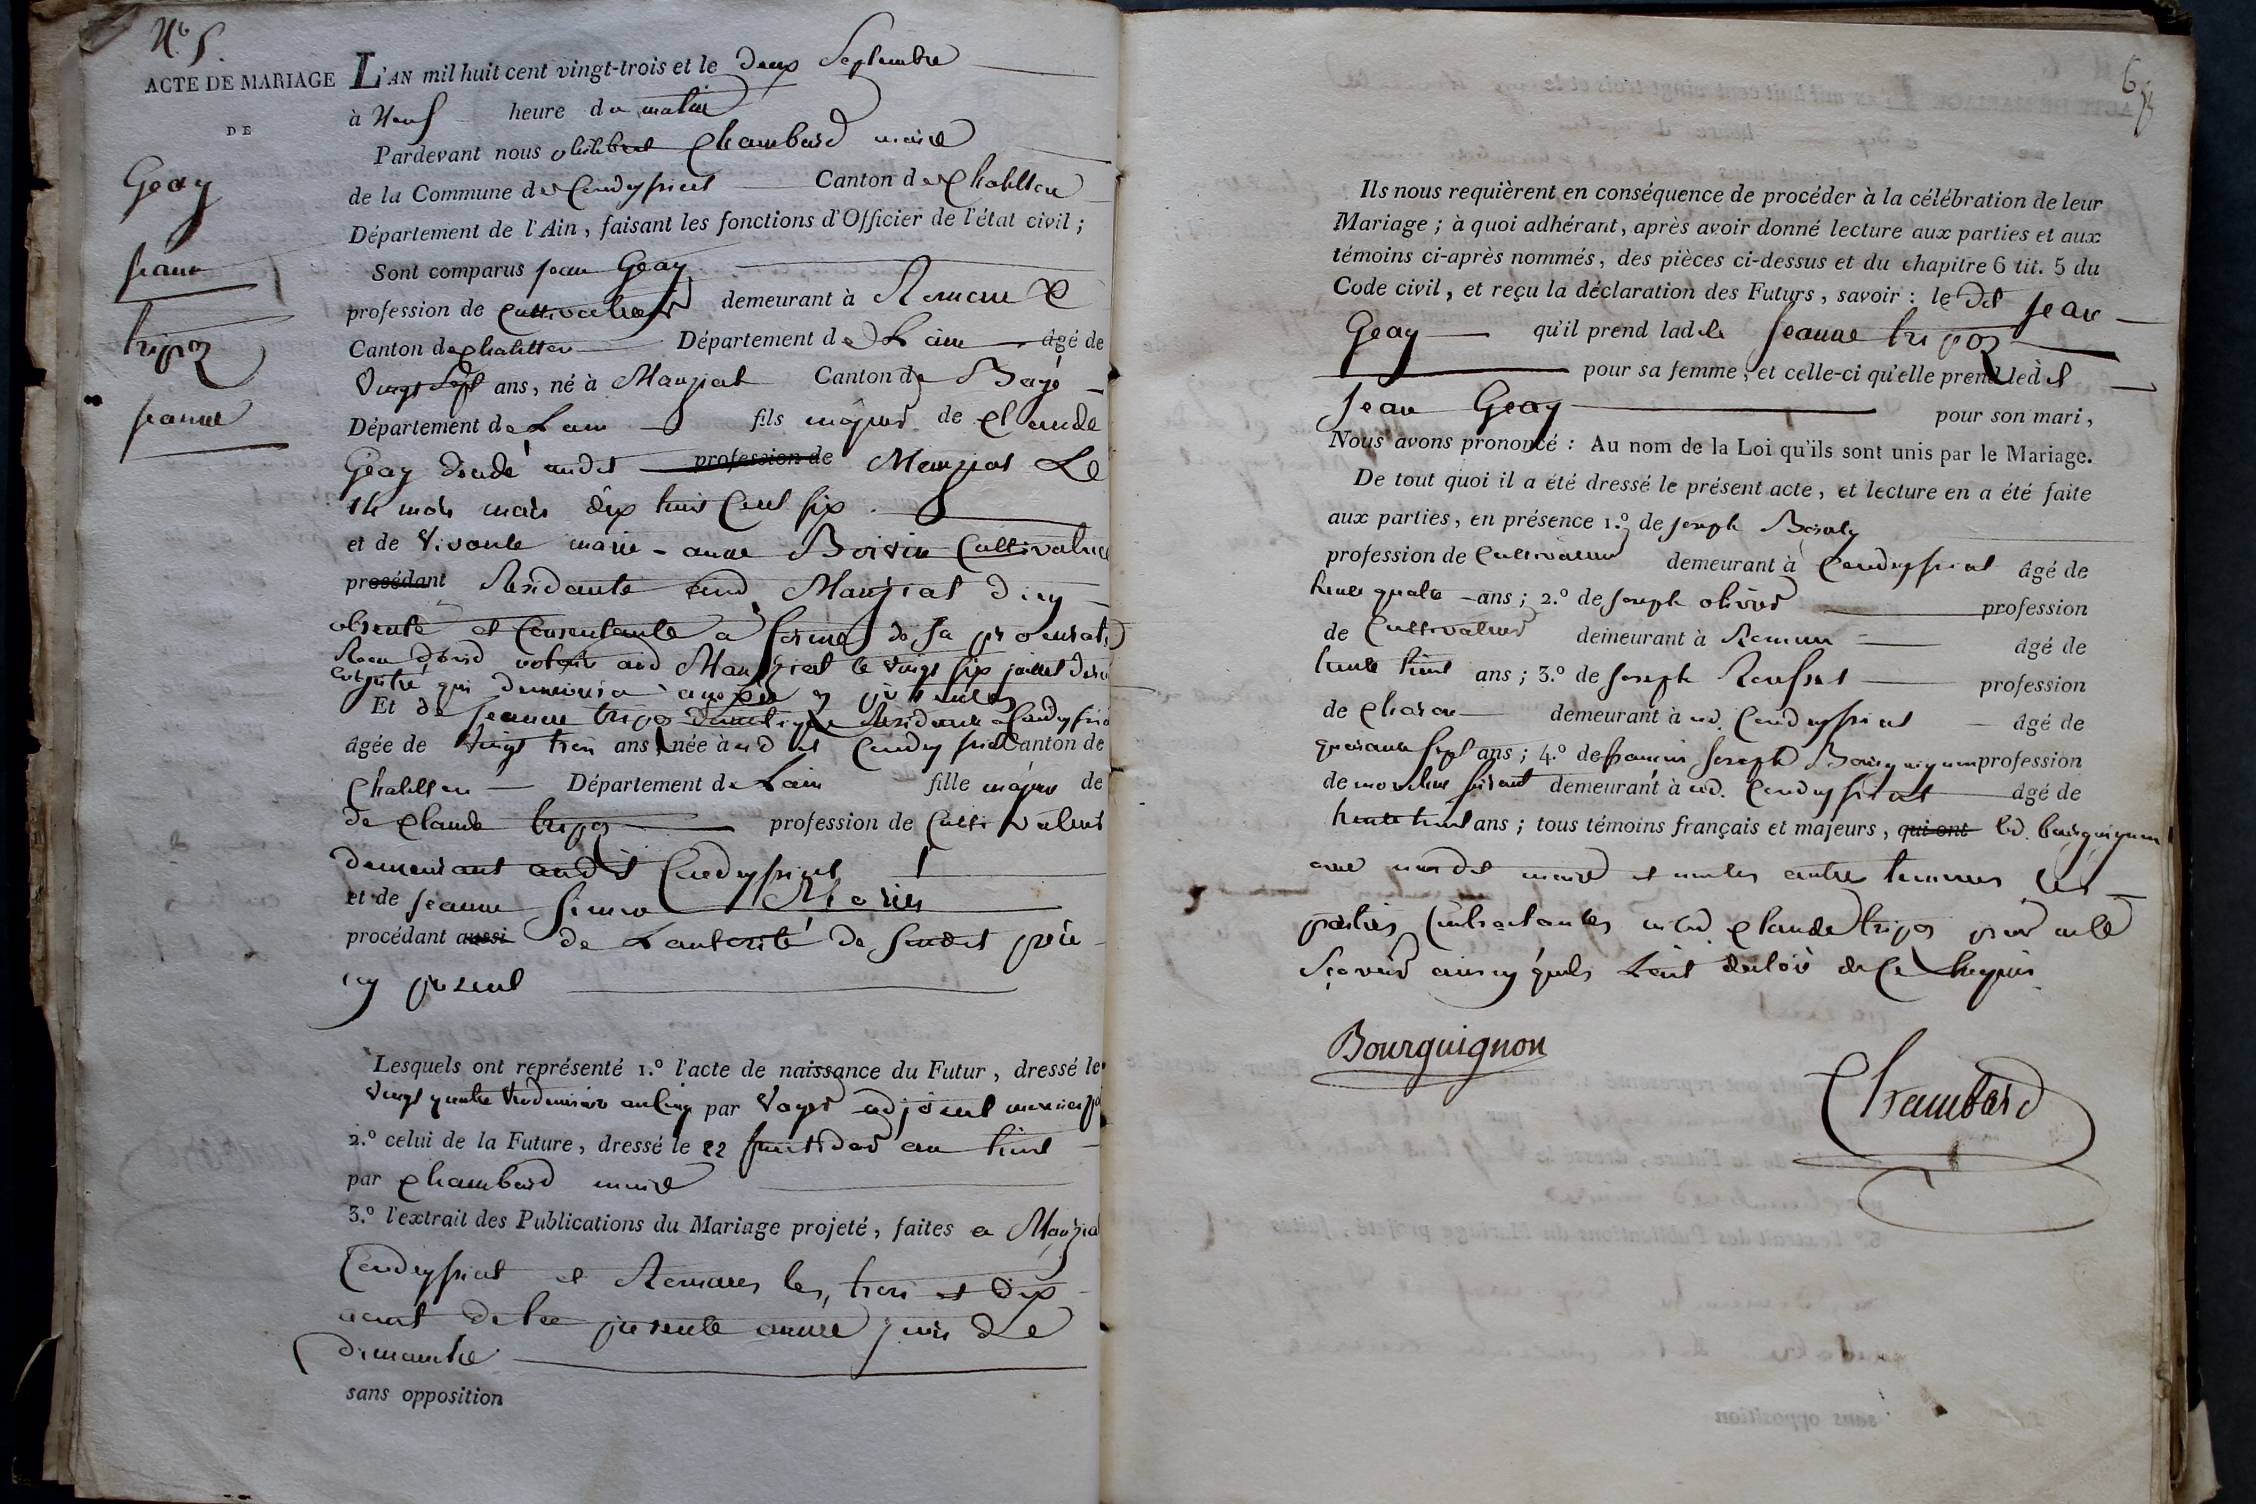 N.o 5.
ACTE DE MARIAGE
DE
Geay
jean
tripoz
jeanne
L'AN mil huit cent vingt-trois et le deux Septembre
à Neuf heure du matin
Pardevant nous philibert Chambard maire
de la Commune de Condeyssiat Canton de Chatillon
Département de l'Ain, faisant les fonctions d'Officier de l'état civil;
Sont comparus jean Geay
profession de Cultivateur demeurant à Romans
Canton de chatillon Département de L'ain âgé de
vingt Sept ans, né à Manziat Canton de Bagé
Département de Lain fils majeur de Claude
Geay décédé audit profession de Manziat Le
14 mois mars dix huit Cent six
et de vivante marie-anne Boivin Cultivatrice
procédant Résidante aud Manziat
absente et Consentante a forme de sa procuration
notaire aud Manziat le vingt six juillet
Et de jeanne tripoz domestique Residante a Condeyssiat
âgée de vingt trois ans née audit Condeyssiat Canton de
Chatillon Département de Lain fille majeure de
de Claude tripoz profession de Cultivateur
demeurant audit Condeyssiat
et de jeanne
procédant aussi de Lautorité de Sondit père
icy present
Lesquels ont représenté 1.º l'acte de naissance du Futur, dressé le
vingt quatre vendemiaire an Cinq par Voyer adjoint municipal
2.º celui de la Future, dressé le 22 fructidor an huit
par Chambard maire
3.º l'extrait des Publications du Mariage projeté, faites a Manziat
Condeyssiat et Romans les trois et dix
aout de la presente année jours de
dimanche
sans opposition
Ils nous requièrent en conséquence de procéder à la célébration de leur
Mariage; à quoi adhérant, après avoir donné lecture aux parties et aux
témoins ci-après nommés, des pièces ci-dessus et du chapitre 6 tit. 5 du
Code civil, et reçu la déclaration des Futurs, savoir: le dit jean
Geay qu'il prend ladite Jeanne tripoz
pour sa femme, et celle-ci qu'elle prend ledit
Jean Geay pour son mari,
Nous avons prononcé: Au nom de la Loi qu'ils sont unis par le Mariage.
De tout quoi il a été dressé le présent acte, et lecture en a été faite
aux parties, en présence 1.º de joseph
profession de Cultivateur demeurant à Condeyssiat âgé de
trente quatre ans; 2.º de joseph olivier profession
de Cultivateur demeurant à Romans âgé de
trente huit ans; 3.º de joseph Rousset profession
de Charon demeurant à ud. Condeyssiat âgé de
quarante sept ans; 4.º de francois joseph Bourguignon profession
de demeurant à ud. Condeyssiat âgé de
trente huit ans; tous témoins français et majeurs, qui ont led. bourguignon
avec nousdit maire et non les autres temoins les
parties Contractantes ni led. Claude tripoz pour ne le
Sçavoir ainsy quils Lont declaré de Ce Requis
Bourguignon
Chambard